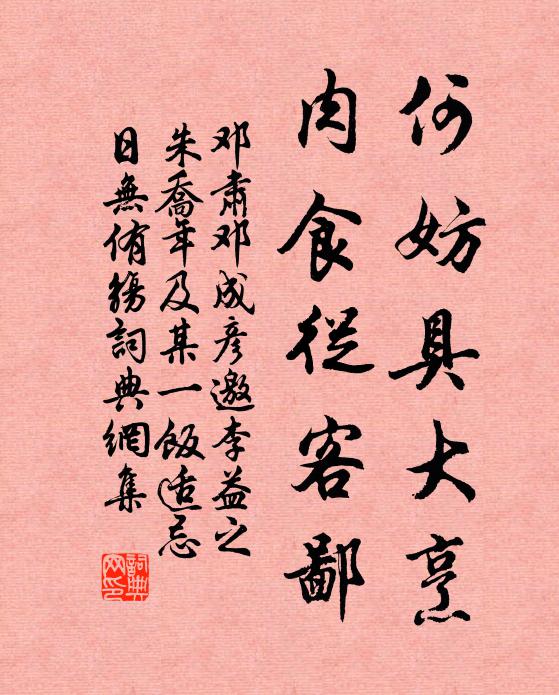 何妨具大烹
肉食從客鄙
邓肅邓成彦邀李益之
朱喬年及某一飯适忌
日無侑觴詞典網集
詞典
网印